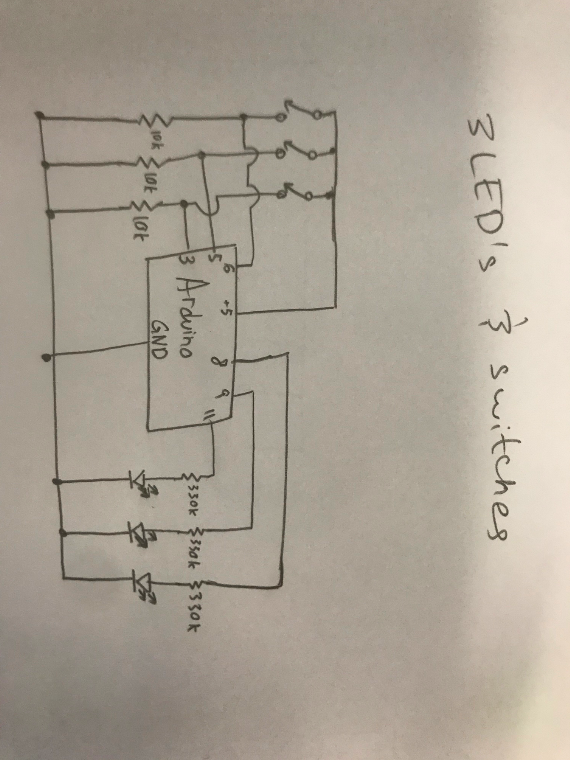 3 LED's & switches
10k
10k
10k
6
5
3
+5
Arduino
GND
8
9
11
330k
330k
330k